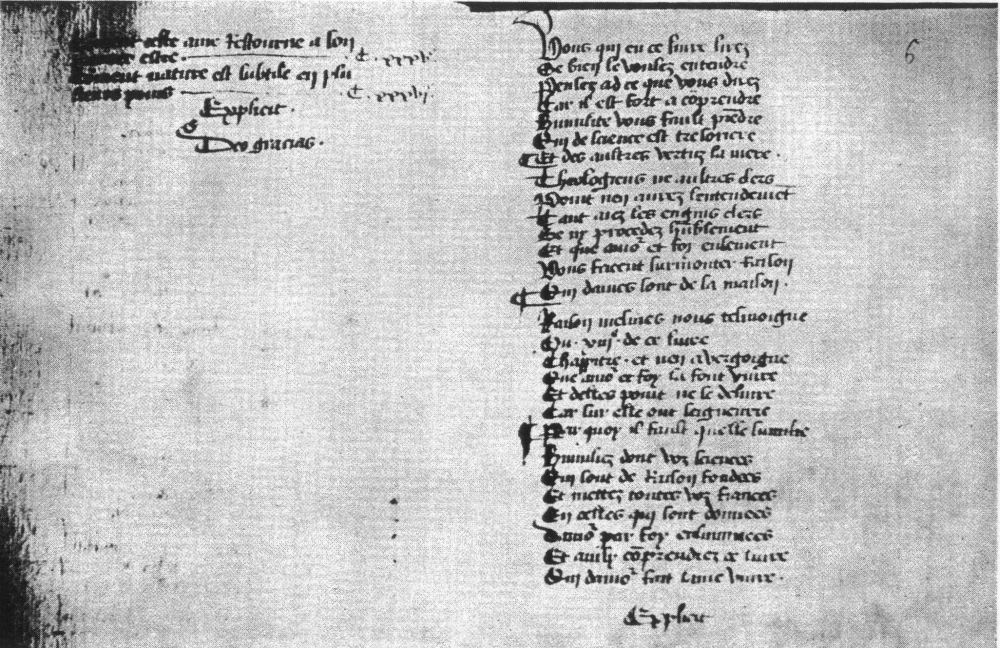 Comment ceste ame retourne a son
premier estre. C. xxxxi.
Comment nature est subtile en plu
sieurs poins C. xxxxi.
Explicit.
Deo gracias.
6
Vous qui en ce livre lirez
Se bien le voulez entendre
Pensez ad ce que vous direz
Car il est fort a cõprendre
Humilite vous fault prẽdre
Qui de science est tresoriere
Et des aultres vertuz la mere.
Theologiens ne aultres clers
Point nen aurez lentendemẽt
Tant aiez les engins clers
Se ny procedez hũblement
Et que amoʳ et foy enlement
Vous facent surmonter raison
Qui dames sont de la maison.
Raison mesmes nous tesmoigne
Ou. xiijᵉ de ce livre
Chappitre. et nen a vergoigne
Que amoʳ et foy la font vivre
Et delles point ne se delivre
Car sur elle ont seigneurie
Par quoy il fault quelle sumilie
Humiliez dont voz sciences
Qui sont de raison fondees
Et mettez toutes voz fiances
En celles qui sont donnees
Damoʳ par foy enluminees
Et ainsy cõprendrez ce livre
Qui damoʳ fait lame vivre.
Explicit